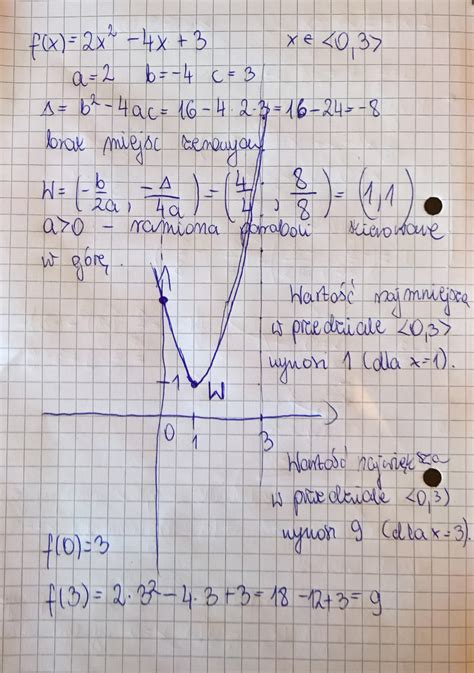 f(x) = 2x² - 4x + 3    x ∈ <0,3>
a = 2    b = -4    c = 3
Δ = b² - 4ac = 16 - 4·2·3 = 16 - 24 = -8
brak miejsc zerowych
W = (-b/2a, -Δ/4a) = (4/4, 8/8) = (1,1)
a>0 - ramiona paraboli skierowane
w górę.
Wartość najmniejsza
w przedziale <0,3>
wynosi 1 (dla x=1).
1
W
0 1 3
Wartość największa
w przedziale <0,3)
wynosi 9 (dla x=3).
f(0) = 3
f(3) = 2·3² - 4·3 + 3 = 18 - 12 + 3 = 9